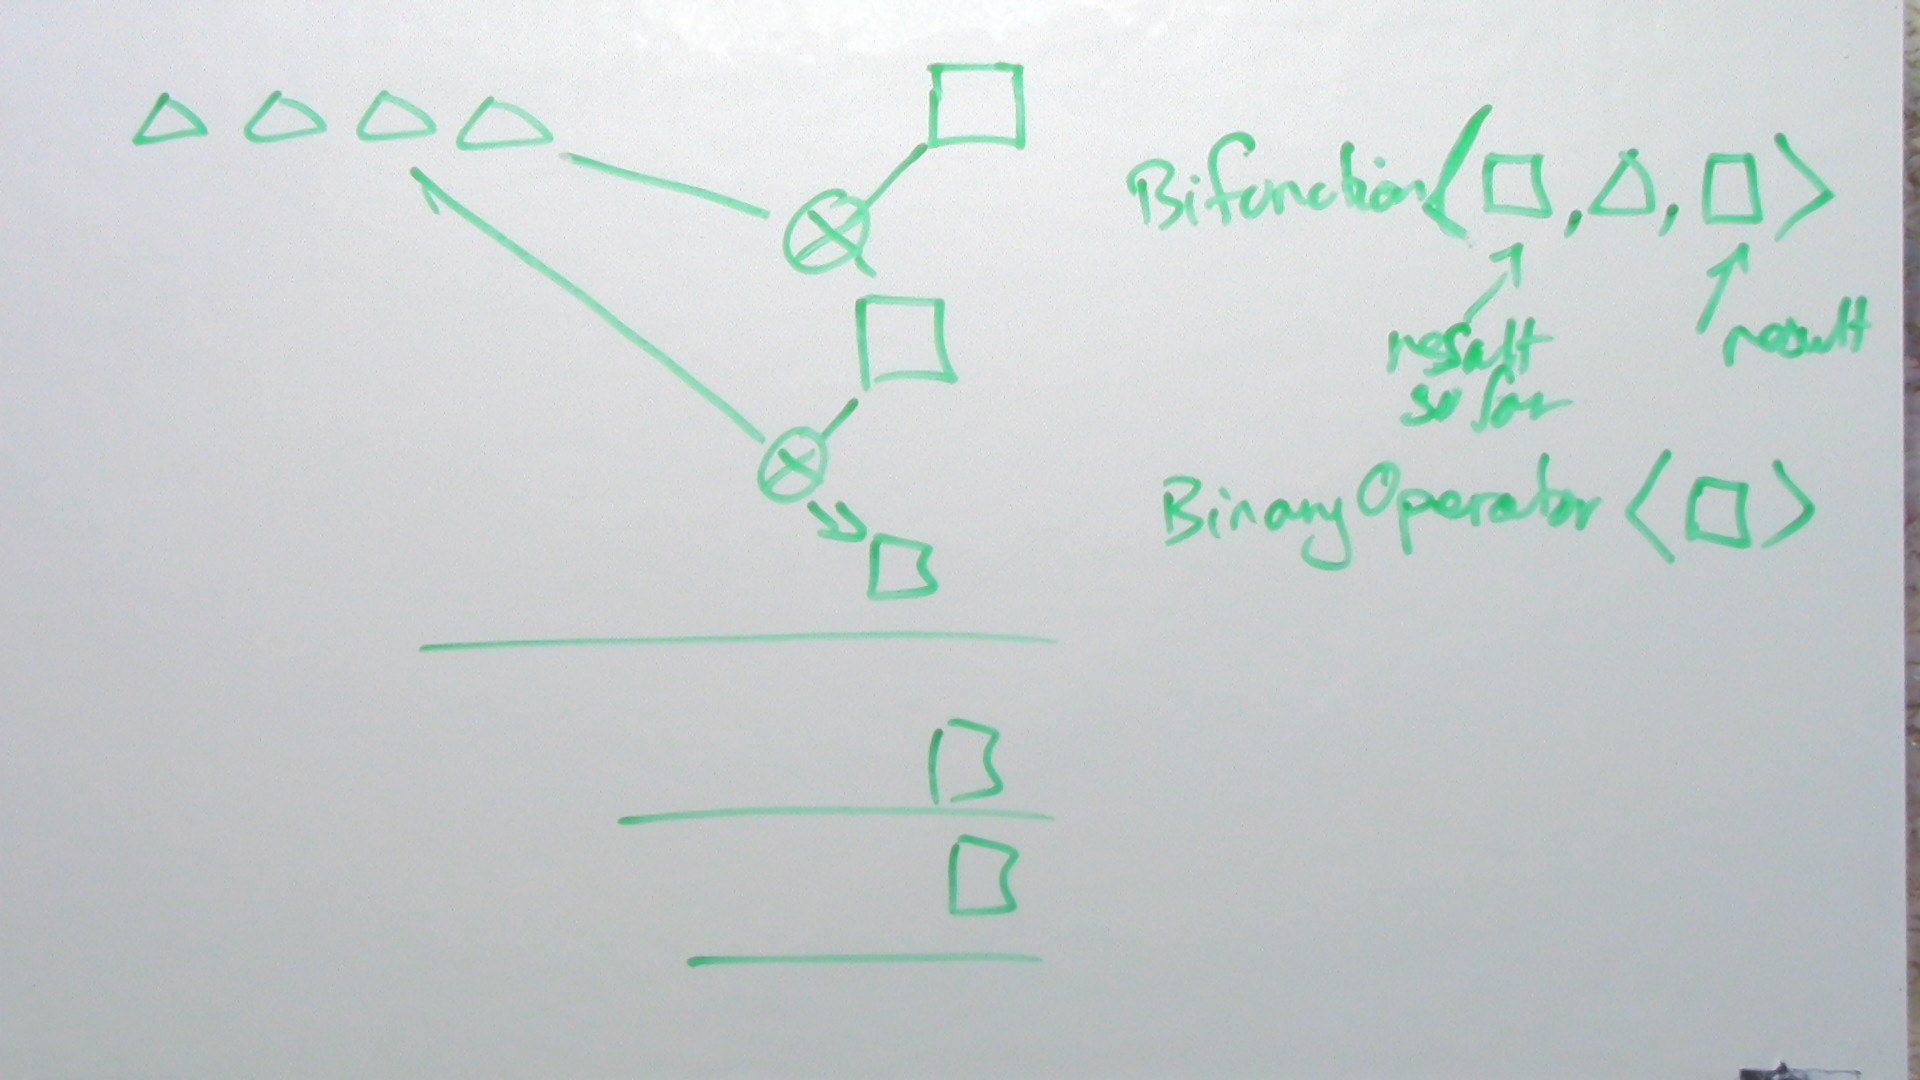 Bifunction< □, △, □ >
result
so far
result
BinaryOperator < □ >